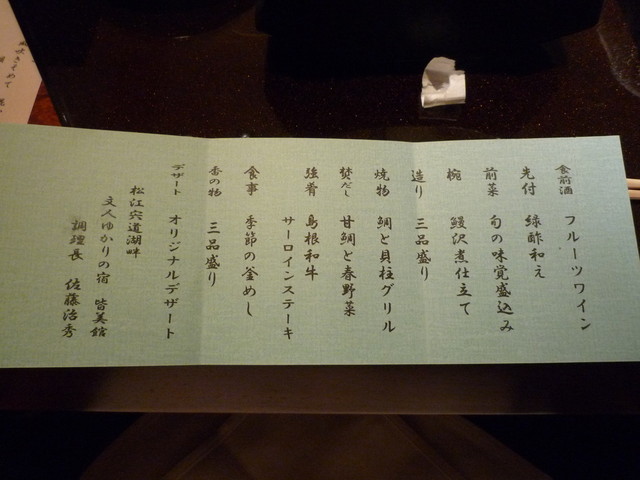 食前酒 フルーツワイン
先付 緑酢和え
前菜 旬の味覚盛込み
椀 鰻沢煮仕立て
造り 三品盛り
焼物 鯛と貝柱グリル
焚だし 甘鯛と春野菜
強肴 島根和牛
サーロインステーキ
食事 季節の釜めし
香の物 三品盛り
デザート オリジナルデザート
松江宍道湖畔
文人ゆかりの宿 皆美館
調理長 佐藤浩秀